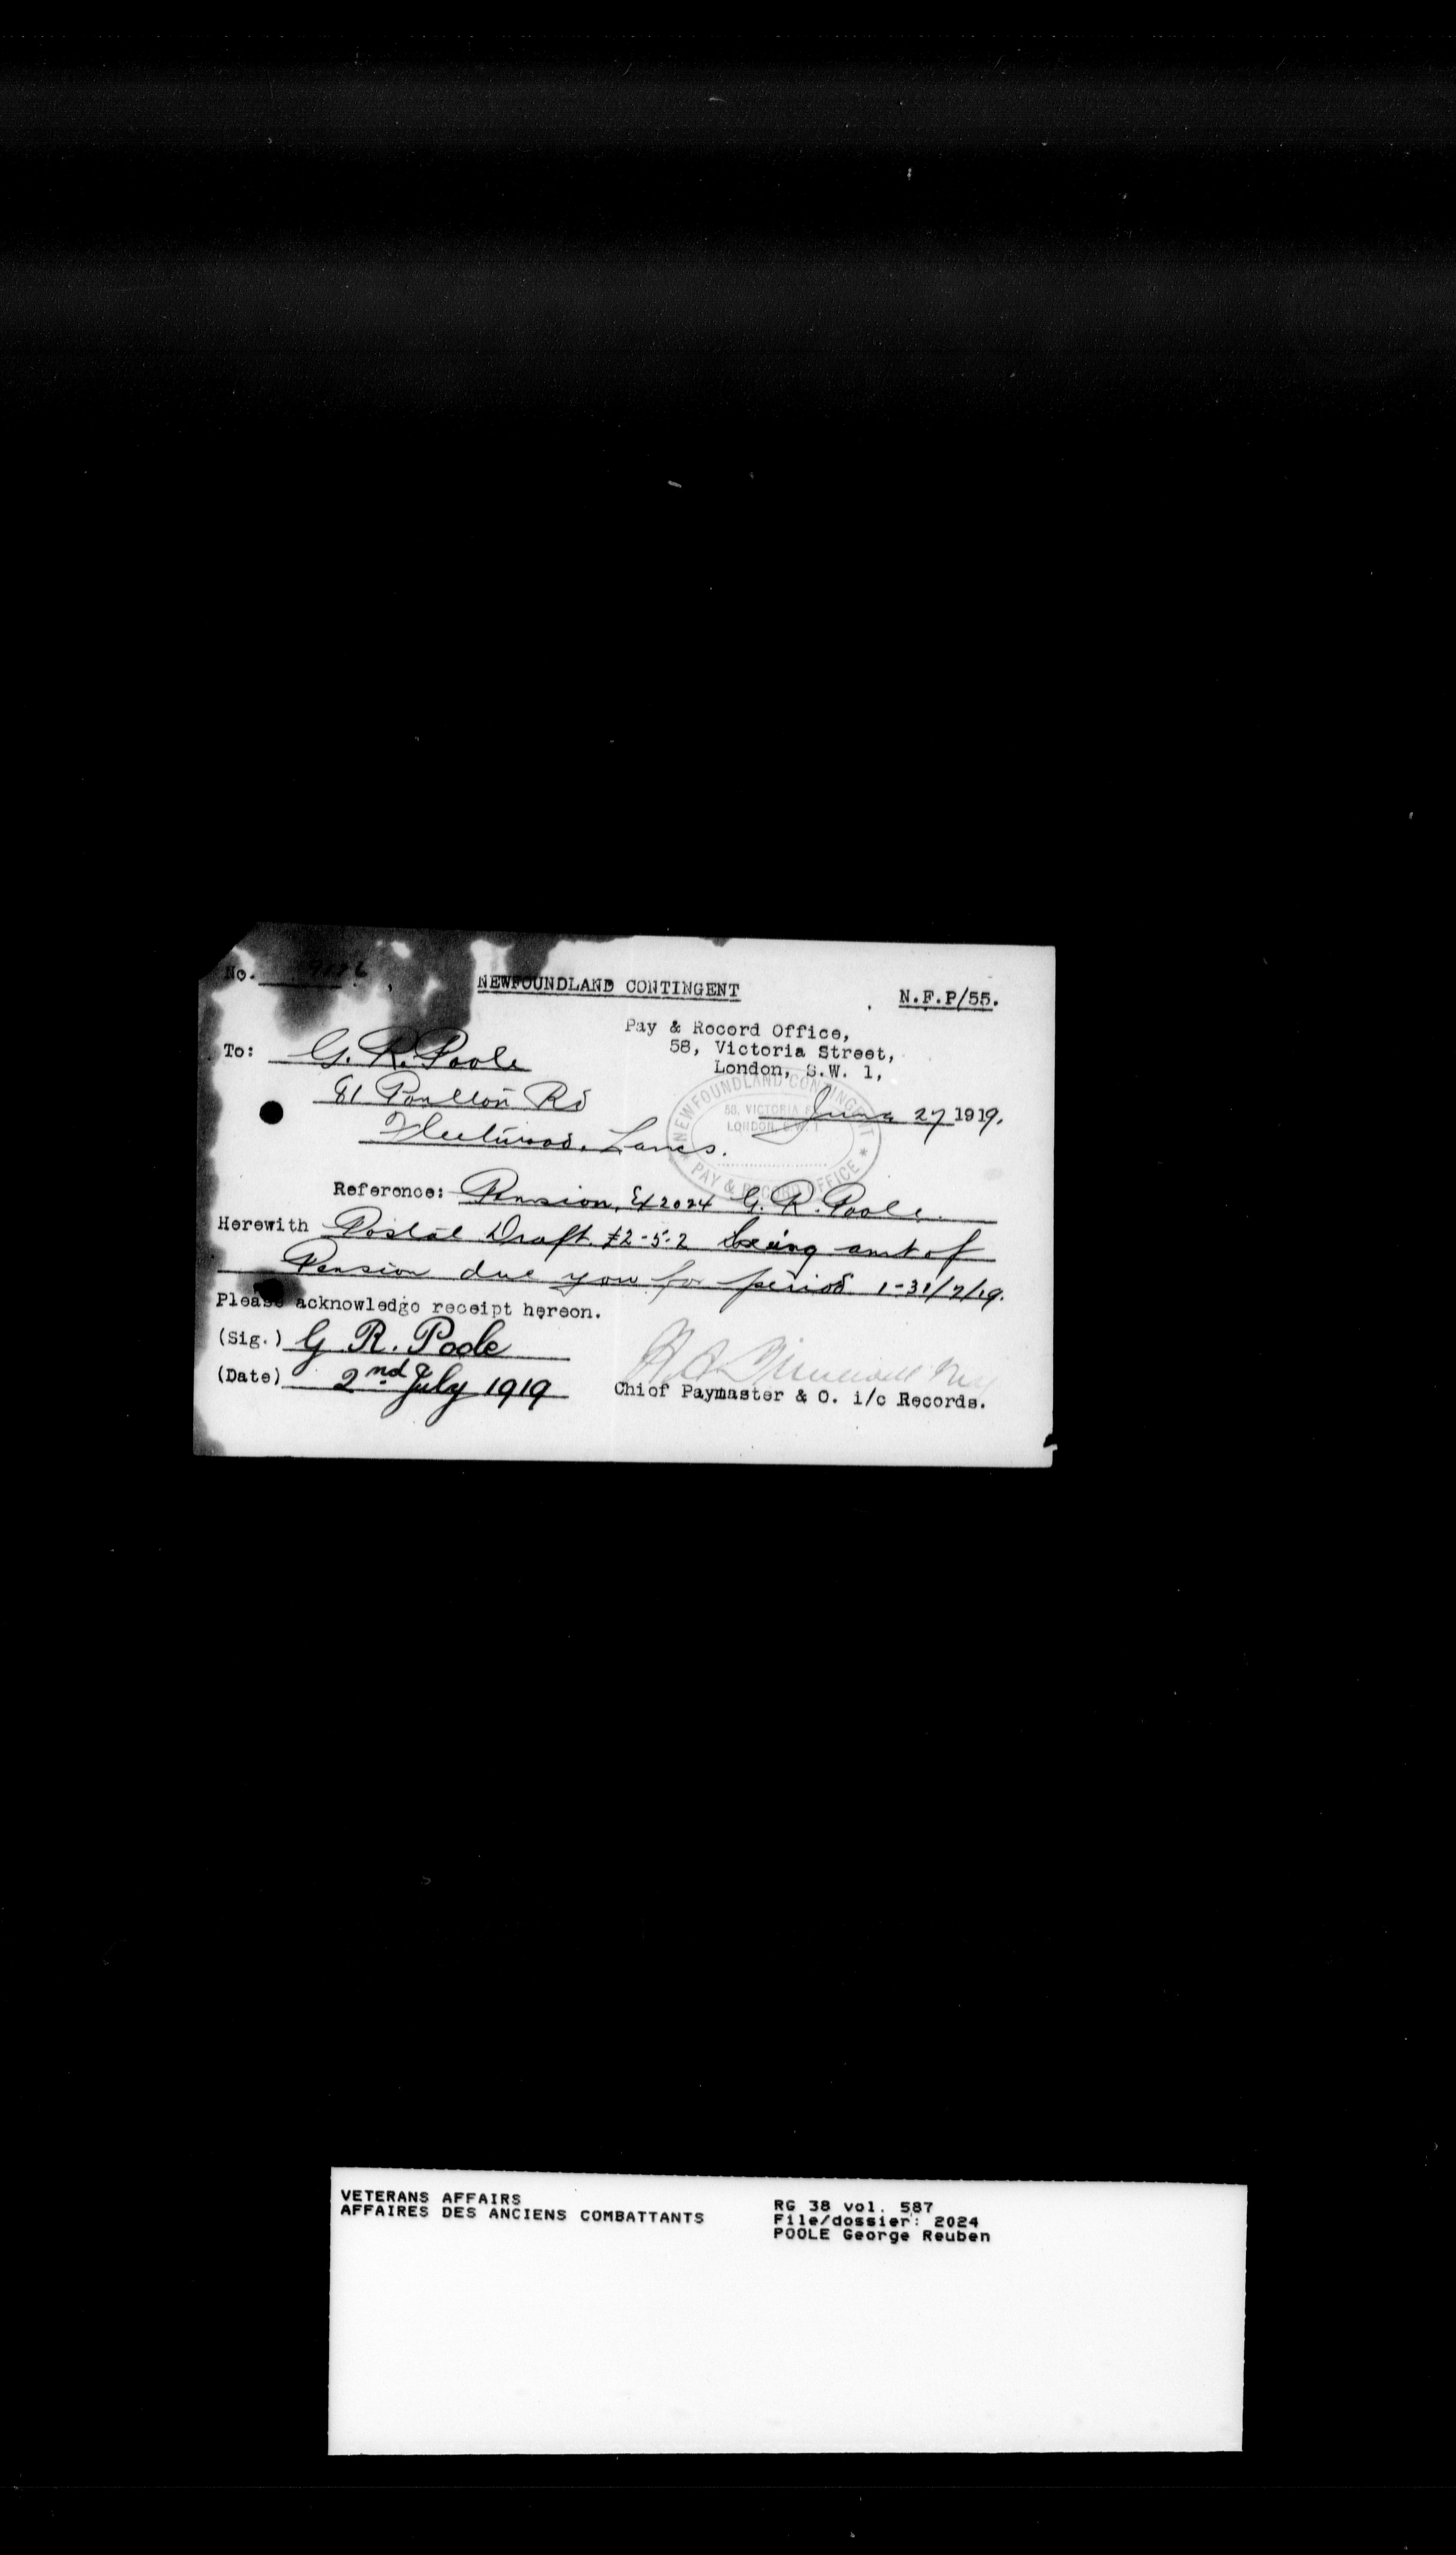 No.
NEWFOUNDLAND CONTINGENT
N.F.P/55.
Pay & Record Office,
58, Victoria Street,
London, S.W. 1,
To: G. R. Poole
81 Poulton Rd
Fleetwood. Lancs.
June 27 1919.
NEWFOUNDLAND CONTINGENT
58, VICTORIA ST
LONDON, S.W. 1
* PAY & RECORD OFFICE *
Reference: Pension, Ex 2024 G. R. Poole.
Herewith Postal Draft. £2-5-2 being amt of
Pension due you for period 1-31/7/19.
Please acknowledge receipt hereon.
(Sig.) G R. Poole
(Date) 2nd July 1919
Chief Paymaster & O. i/c Records.
VETERANS AFFAIRS
AFFAIRES DES ANCIENS COMBATTANTS
RG 38 vol. 587
File/dossier: 2024
POOLE George Reuben